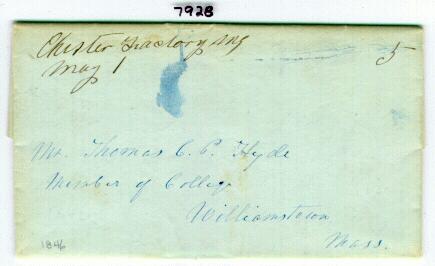 792B
Chester Factory Ms
May 1
5
Mr. Thomas C. P. Hyde
Member of College
Williamstown
Mass.
1846